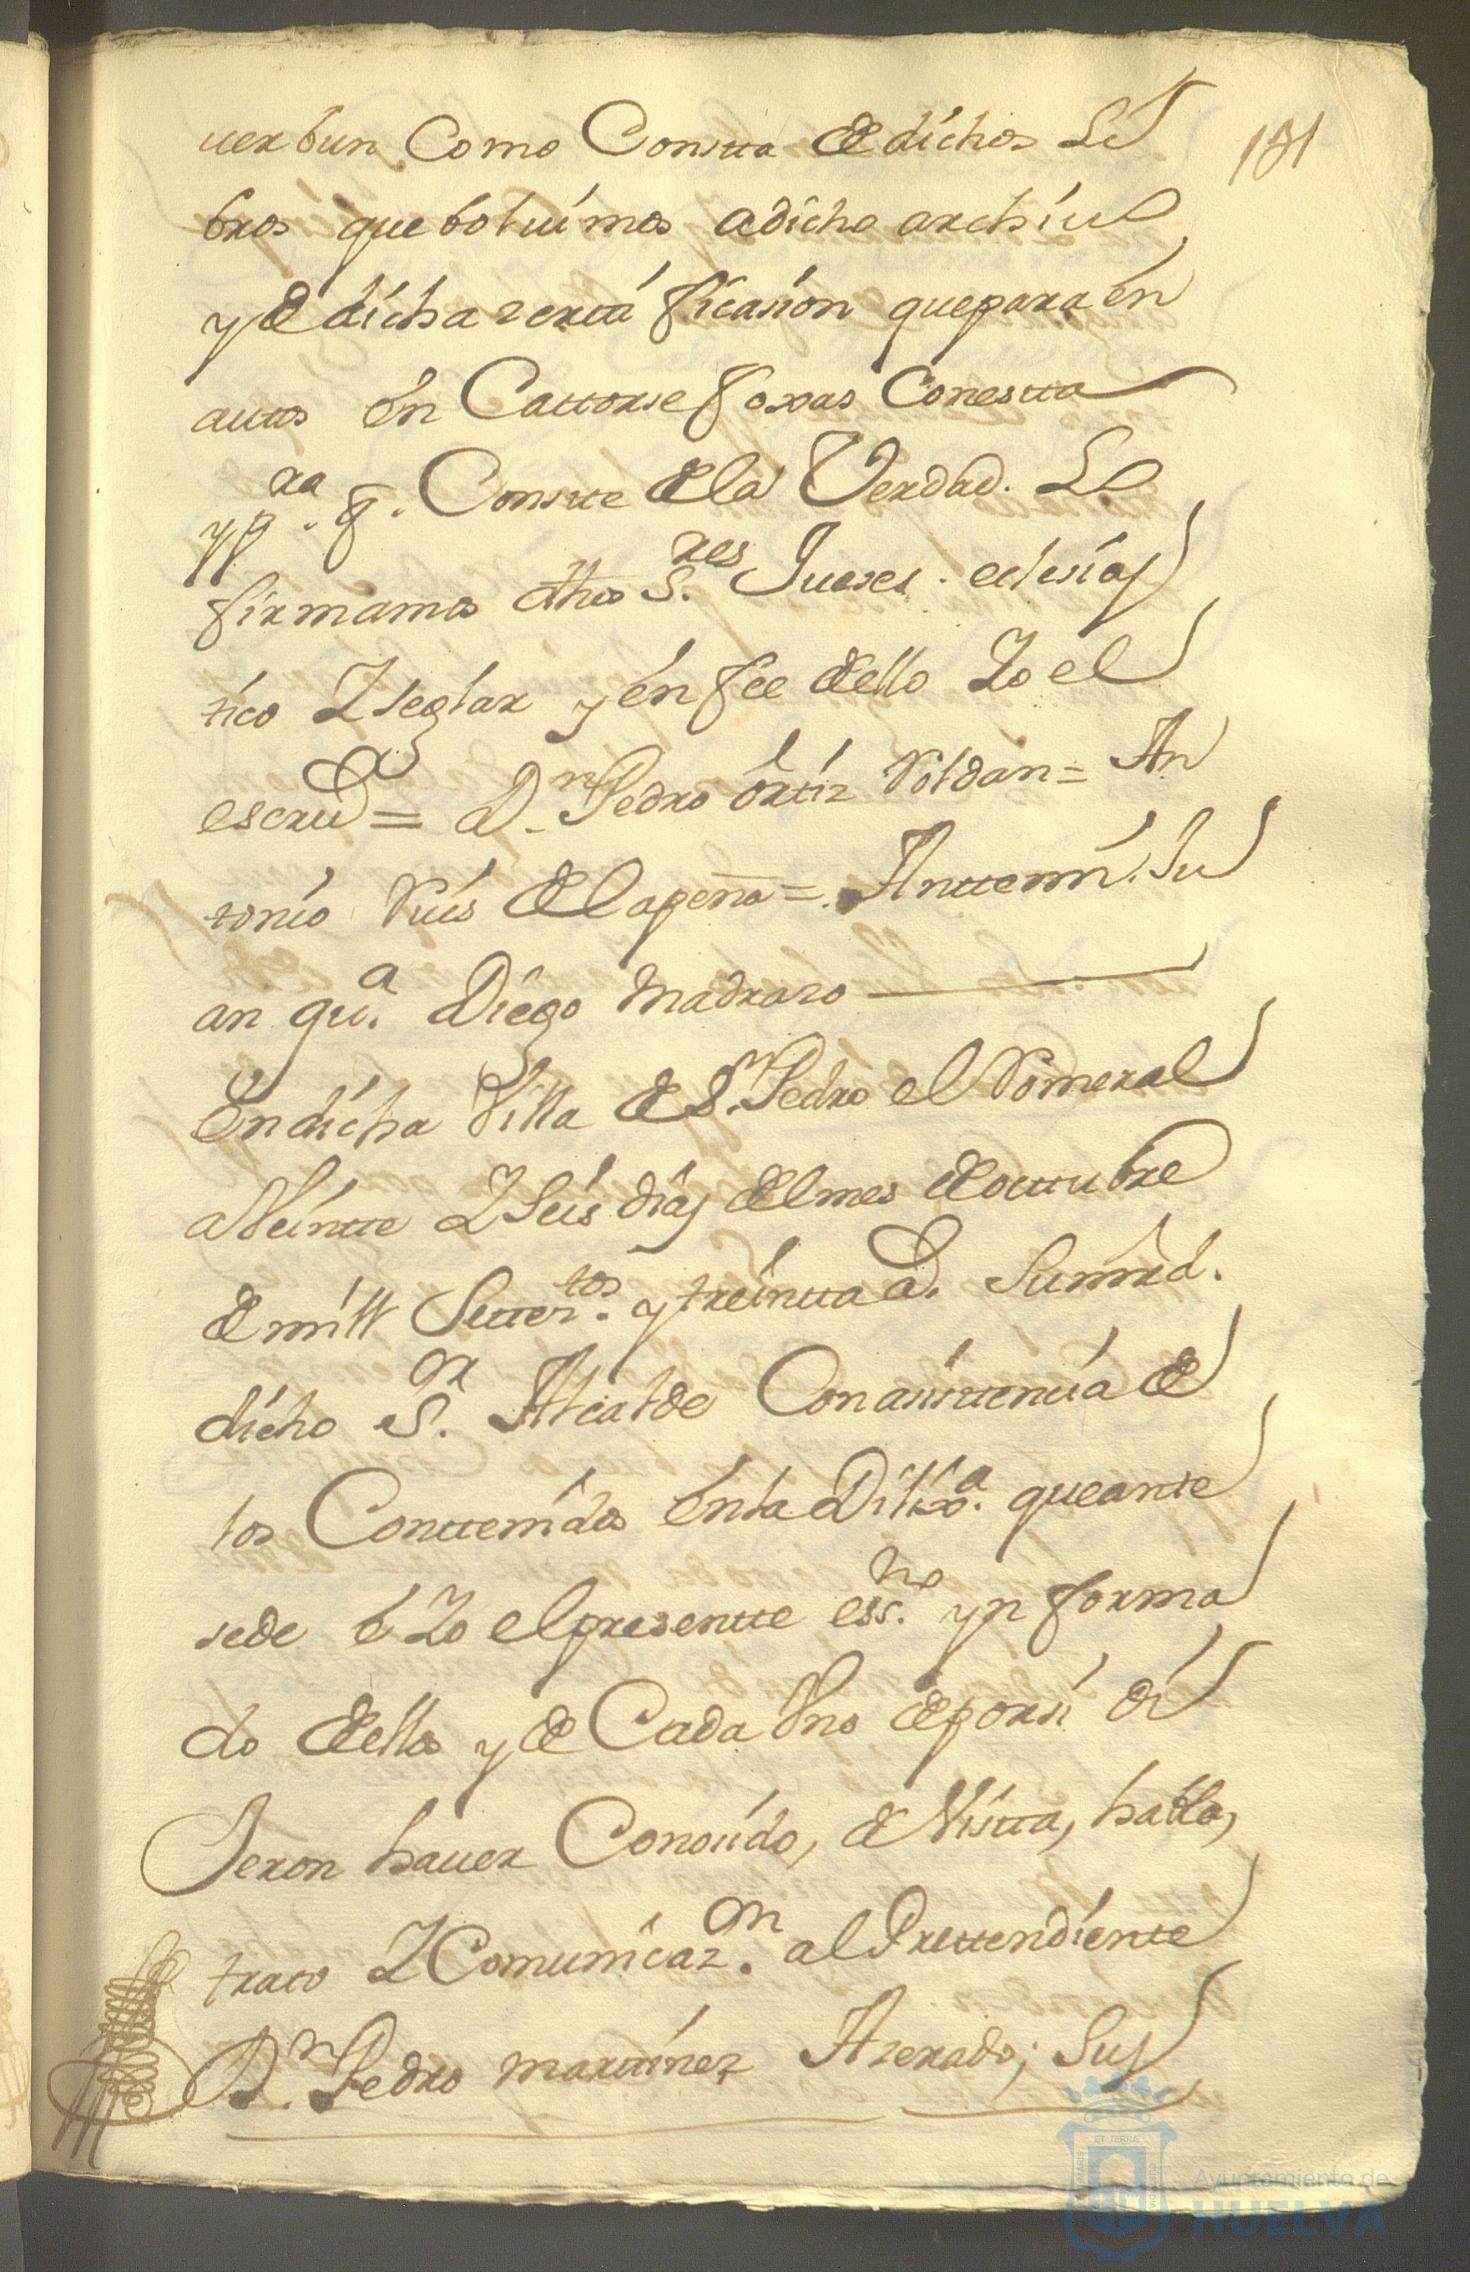 131
uerbun Como Constta de dichos Li
bros que boluimos a dicho archiuo
y de dicha zertificasion que para en
autos en Cattorse foxas Con estta
y pa.ra q. Constte de la Verdad. Lo
firmamos dhos S.res Jueses. eclesias
tico Y seglar y en fee de ello Yo el
escriu.o = D.n Pedro ortiz Roldan = An
tonio Ruis de la peña = Antte mi. Ju
an gu.a Diego Madrazo
En dicha Villa de S.n Pedro el Romeral
a Veintte Y Seis dias del mes de octtubre
de mill Settez.tos y treintta a.s Su mrd.
dicho S.or Alcalde Con asisttencia de
los Conttenidos en la Dilix.a que ante
sede e Yo el presentte ess.no ynforma
do de ellos y de Cada Vno de por si di
Jeron hauer Conosido, de Vistta, habla,
trato Y Comunicaz.on al Prettendiente
D.n Pedro Marttinez Azerado; Sus
ET TERRÆ
Ayuntamiento de
HUELVA